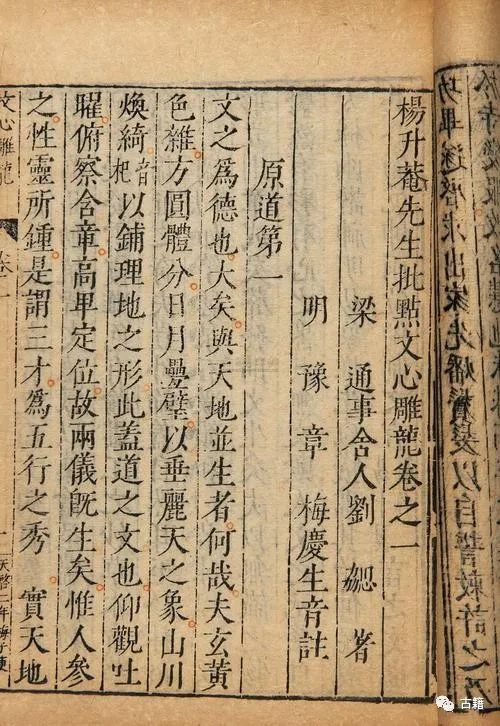 功畢遂啓求出家先燔鬢髮以自誓敕許之乃
楊升菴先生批點文心雕龍卷之一
梁 通事舍人劉 勰 著
明 豫 章 梅慶生音註
原道第一
文之爲德也大矣與天地並生者何哉夫玄黃
色雜方圓體分日月疊璧以垂麗天之象山川
煥綺音杞以鋪理地之形此蓋道之文也仰觀吐
曜俯察含章高卑定位故兩儀既生矣惟人參
之性靈所鍾是謂三才爲五行之秀 實天地
文心雕龍 卷一 一
古籍